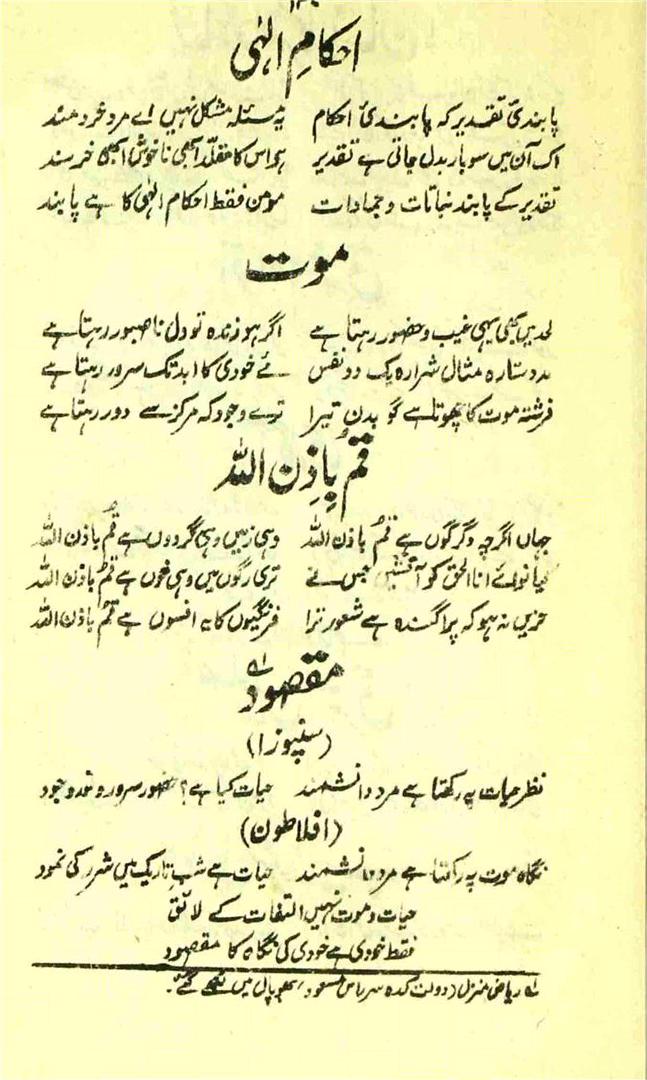 احکامِ الٰہی
پابندیٔ تقدیر کہ پابندیٔ احکام یہ مسئلہ مشکل نہیں اے مردِ خردمند
اک آن میں سو بار بدل جاتی ہے تقدیر ہے اس کا مقلّد ابھی ناخوش ابھی خرسند
تقدیر کے پابند نباتات و جمادات مومن فقط احکامِ الٰہی کا ہے پابند
موت
لحد میں بھی یہی غیب و حضور رہتا ہے اگر ہو زندہ تو دل ناصبور رہتا ہے
مہ و ستارہ مثالِ شرارہ یک دو نفس مئے خودی کا ابد تک سرور رہتا ہے
فرشتہ موت کا چھوتا ہے گو بدن تیرا ترے وجود کے مرکز سے دور رہتا ہے
قُم بِاِذنِ اللہ
جہاں اگرچہ دگرگوں ہے قُم باذن اللہ وہی زمیں وہی گردوں ہے قُم باذن اللہ
کیا نوائے اناالحق کو آتشیں جس نے تری رگوں میں وہی خوں ہے قُم باذن اللہ
حزیں نہ ہو کہ پراگندہ ہے شعور ترا فرنگیوں کا یہ افسوں ہے قُم باذن اللہ
مقصود ؂۱
(سنپوزا)
نظر حیات پہ رکھتا ہے مردِ دانشمند حیات کیا ہے؟ حضور و سرور و نور و وجود
(افلاطون)
نگاہ موت پہ رکھتا ہے مردِ دانشمند حیات ہے شبِ تاریک میں شرر کی نمود
حیات و موت نہیں التفات کے لائق
فقط خودی ہے خودی کی نگاہ کا مقصود
؂۱ ریاض منزل (دولت کدہ سر راس مسعود) بھوپال میں لکھے گئے۔